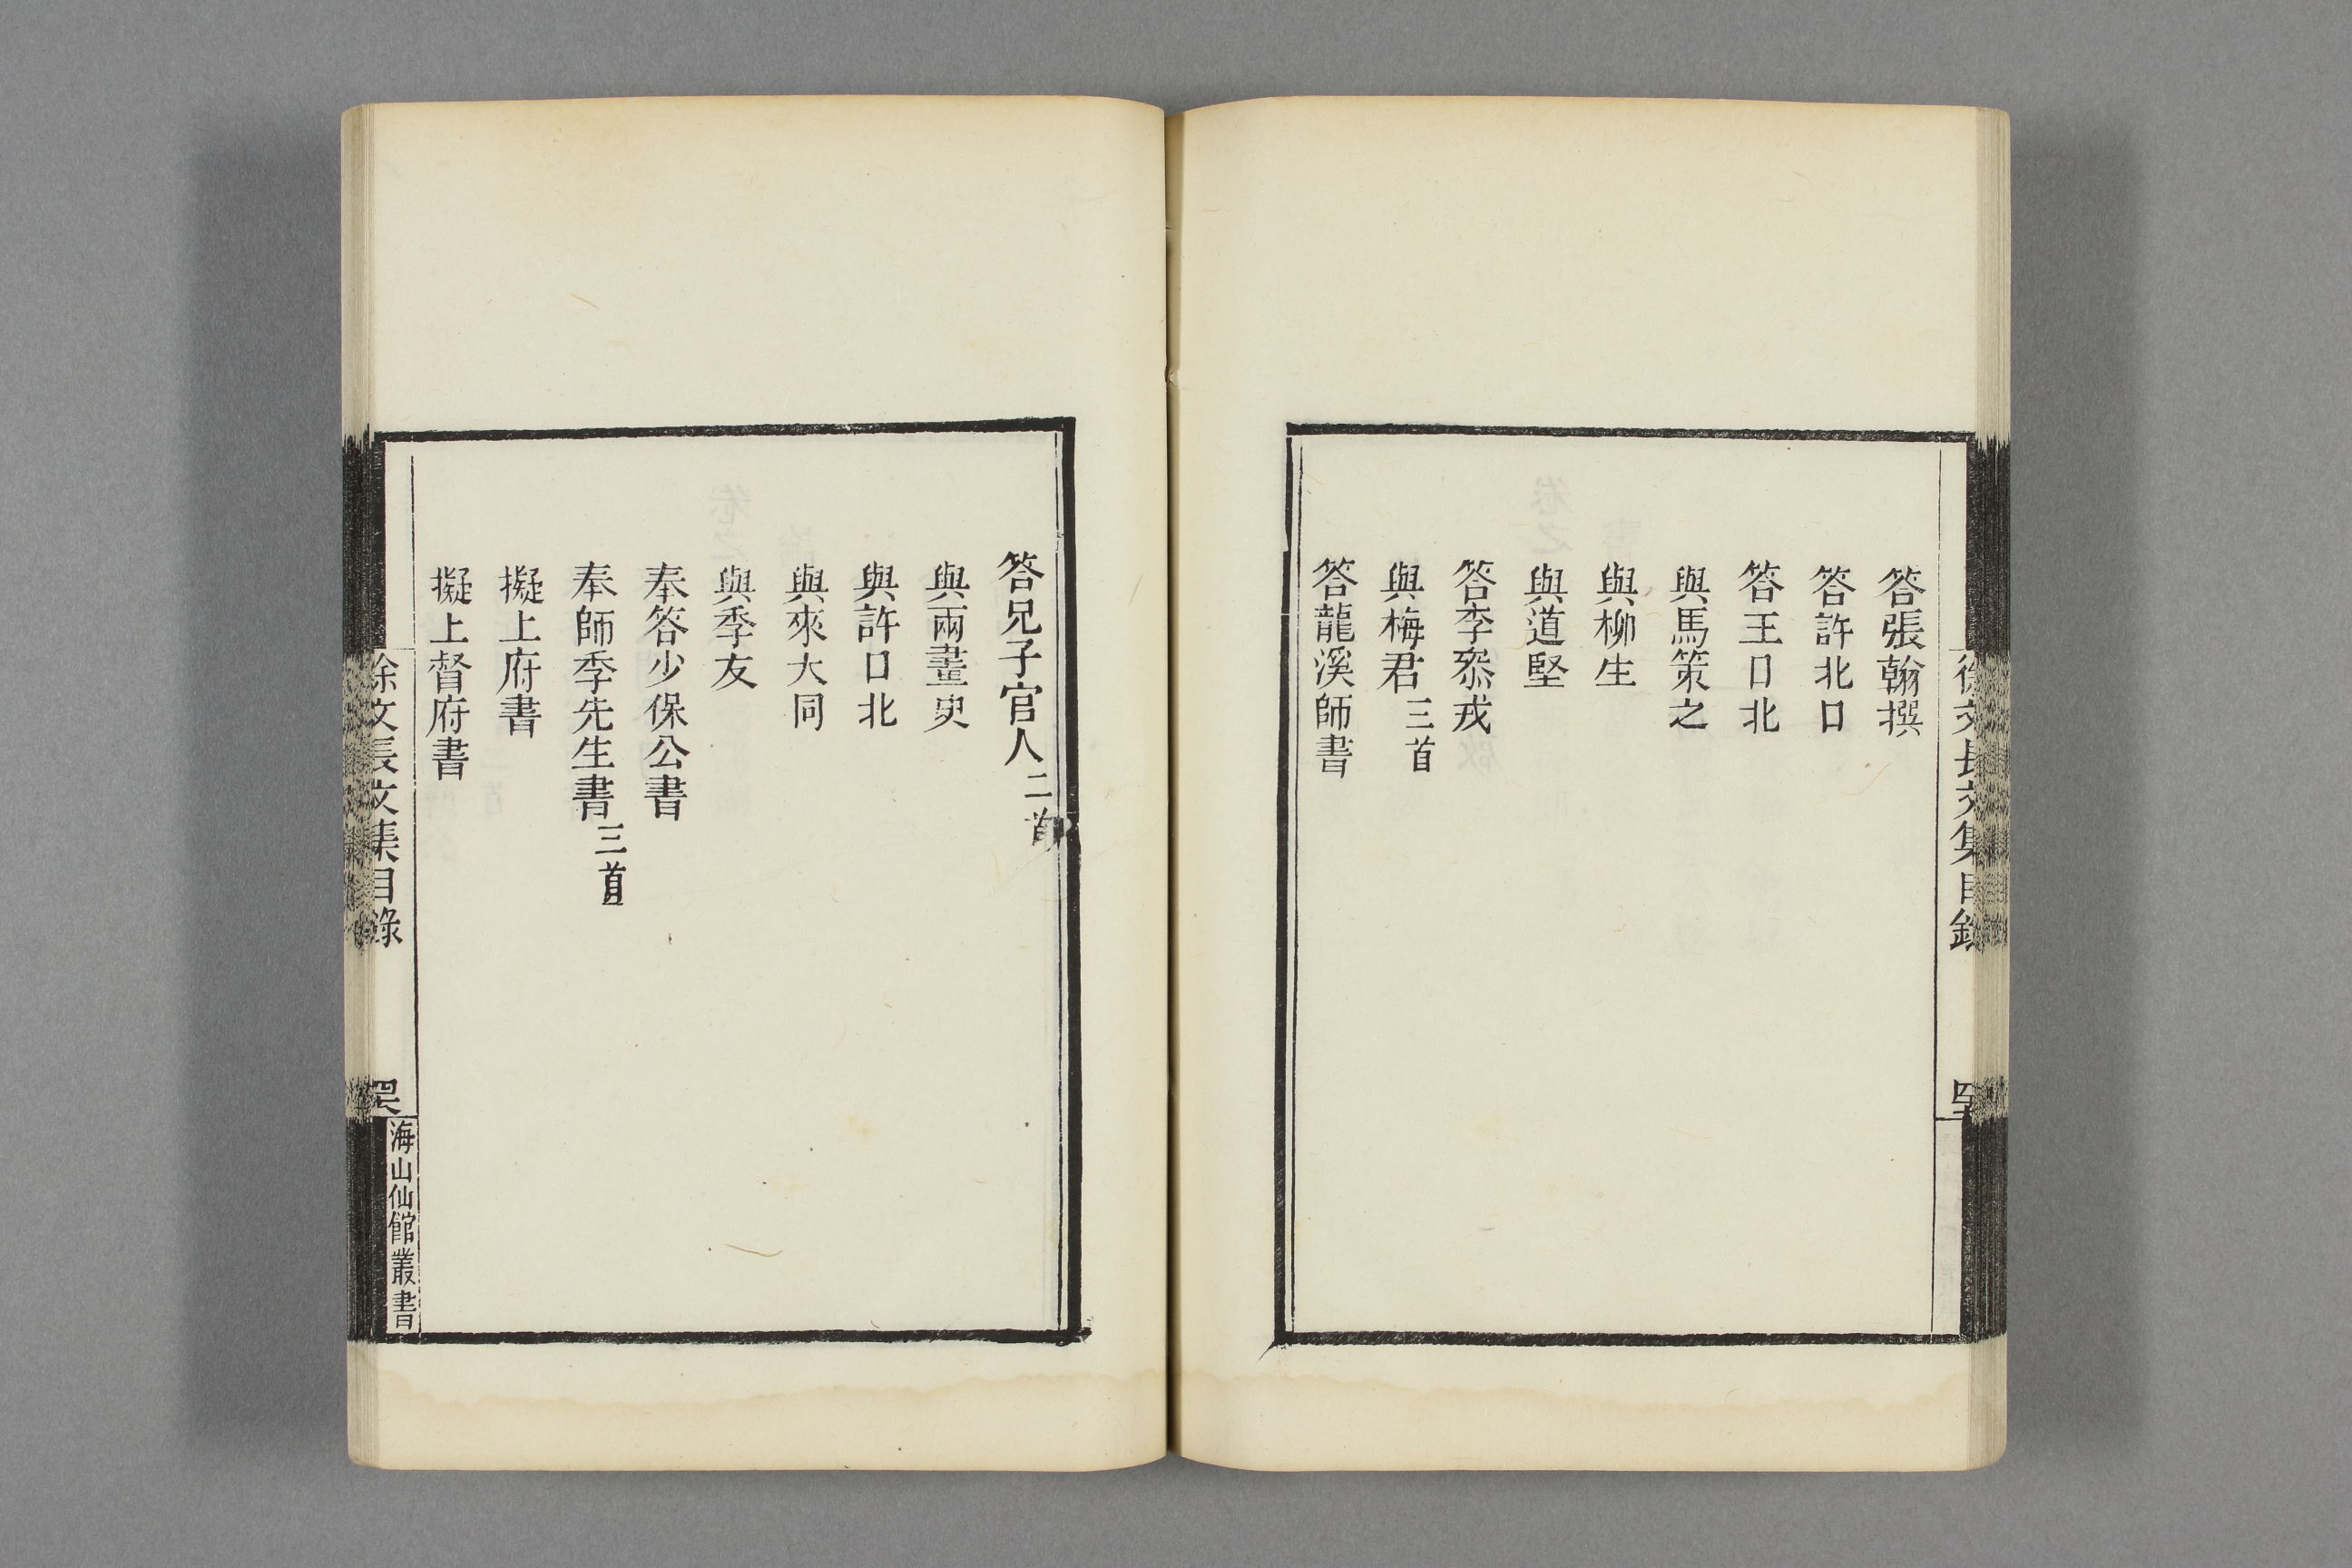 答張翰撰
答許北口
答王口北
與馬策之
與柳生
與道堅
答李叅戎
與梅君三首
答龍溪師書
答兄子官人二首
與兩畫史
與許口北
與來大同
與季友
奉答少保公書
奉師季先生書三首
擬上府書
擬上督府書
徐文長文集目錄
海山仙館叢書